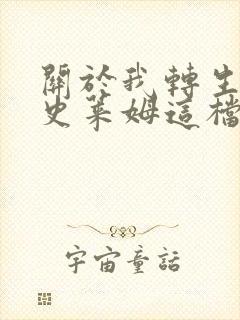 關於我轉生
史萊姆這檔
宇宙童話